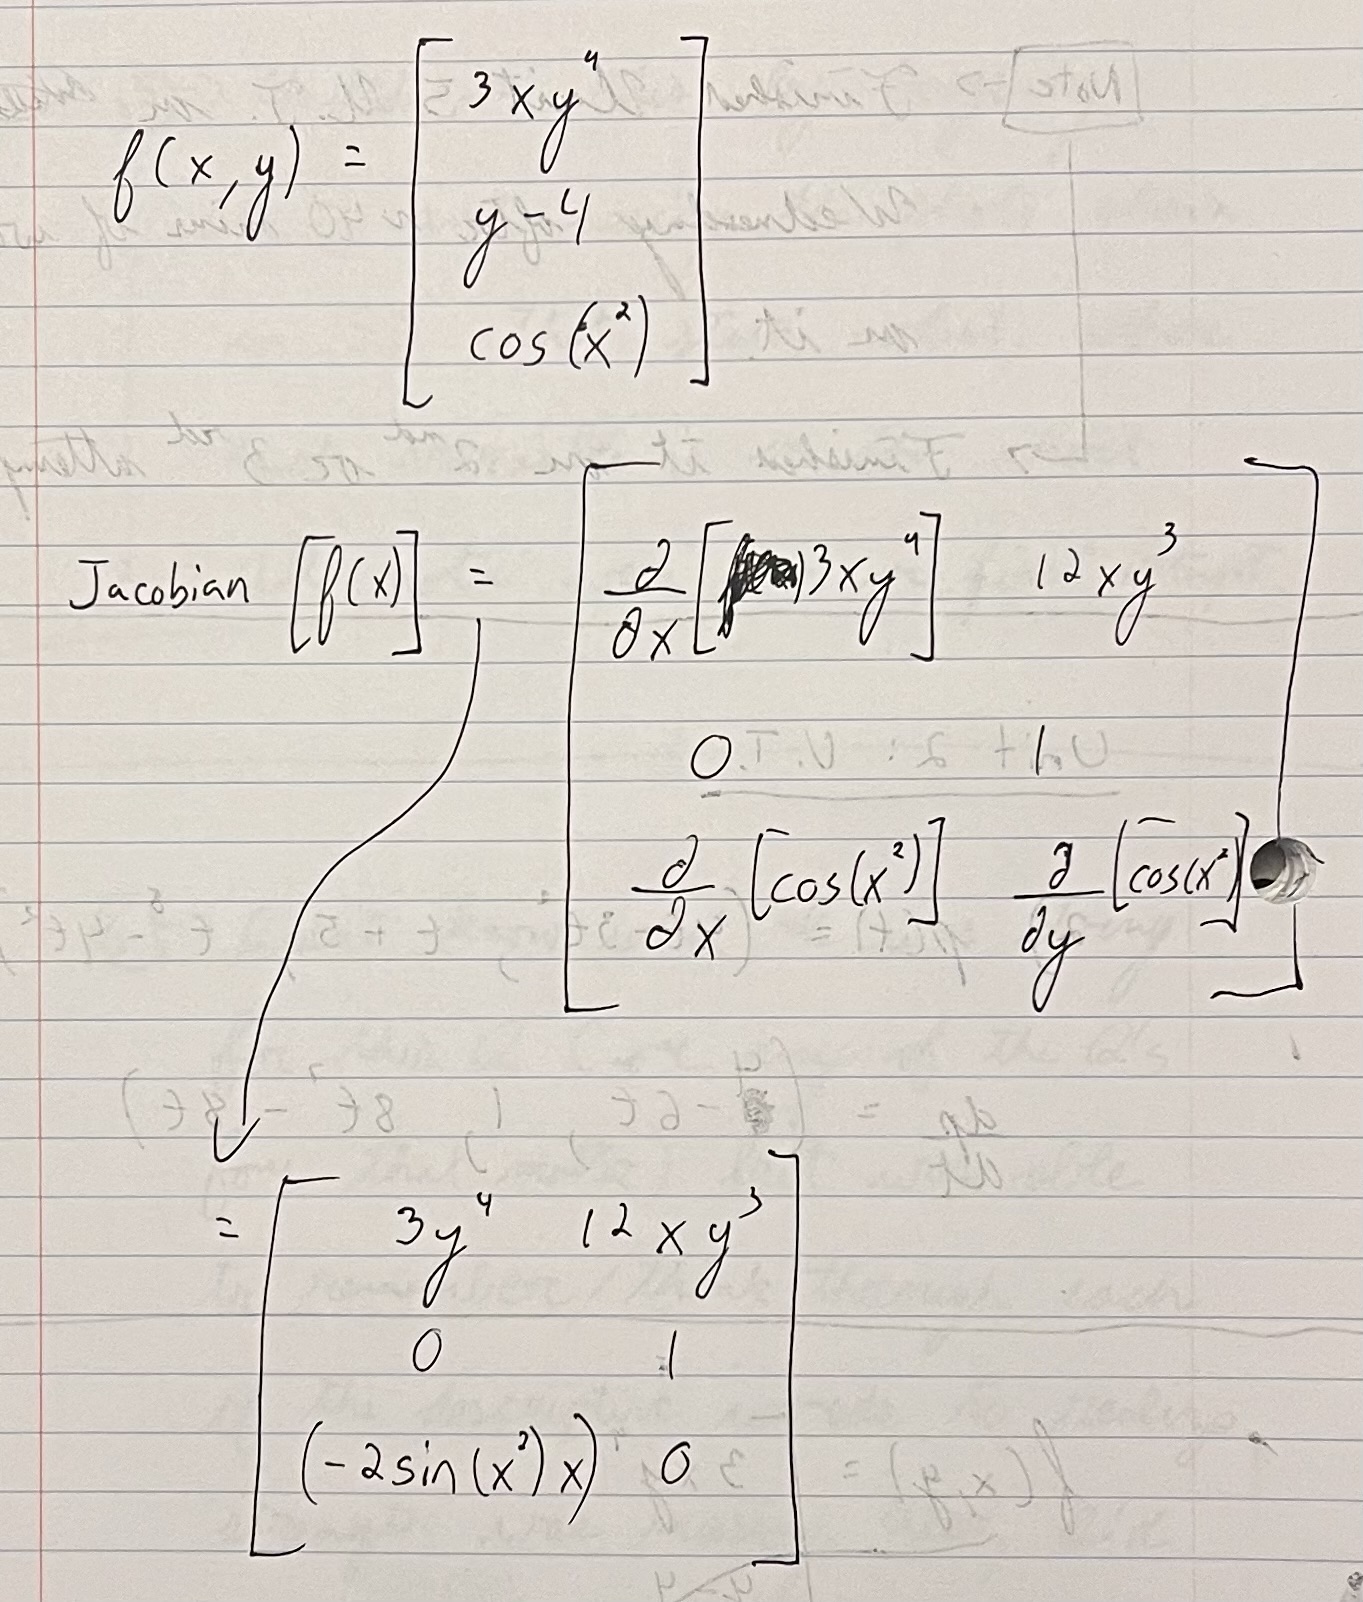 f(x,y) = [ 3xy⁴
y-4
cos(x²) ]
Jacobian [f(x)] = [ ∂/∂x [3xy⁴] 12xy³
0 1
∂/∂x [cos(x²)] ∂/∂y [cos(x²)] ]
= [ 3y⁴ 12xy³
0 1
(-2sin(x²)x) 0 ]